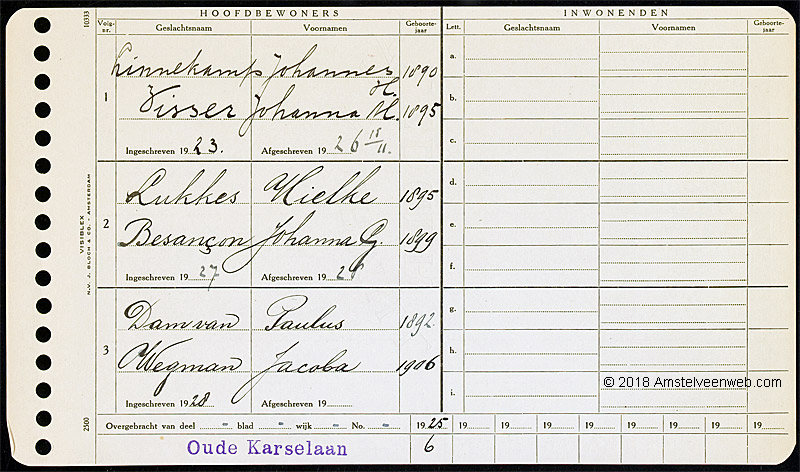 HOOFDBEWONERS INWONENDEN
Volg-nr. Geslachtsnaam Voornamen Geboorte-jaar Lett. Geslachtsnaam Voornamen Geboorte-jaar
Linnekamp Johannes H. 1890
1 Visser Johanna M. 1895
Ingeschreven 1923. Afgeschreven 1926 18/11.
Lukkes Hielke 1895
2 Besançon Johanna G. 1899
Ingeschreven 1927 Afgeschreven 1928
Dam van Paulus 1892
3 Wegman Jacoba 1906
Ingeschreven 1928 Afgeschreven 19
a.
b.
c.
d.
e.
f.
g.
h.
i.
Overgebracht van deel - blad - wijk - No. - 1925 19 19 19 19 19 19 19 19
Oude Karselaan 6
10333
VISIBLEX
N.V. J. BLOCH & CO. - AMSTERDAM
2500
© 2018 Amstelveenweb.com